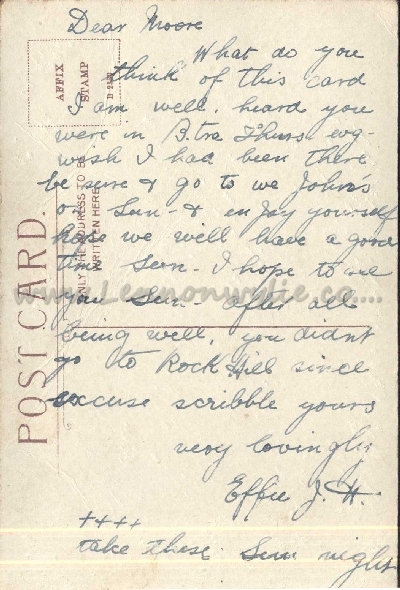 Dear Moore
What do you
think of this card
I am well. heard you
were in B.tra Thurs evg-
wish I had been there
be sure & go to we John's
on Sun- & enjoy yourself
hope we will have a good
time Sun- I hope to see
you Sun- after all
being well, you didnt
go to Rock Hill since
excuse scribble yours
very lovingly
Effie J. H.
++++
take these Sun night
POST CARD.
AFFIX
STAMP
ONLY THE ADDRESS TO BE
WRITTEN HERE